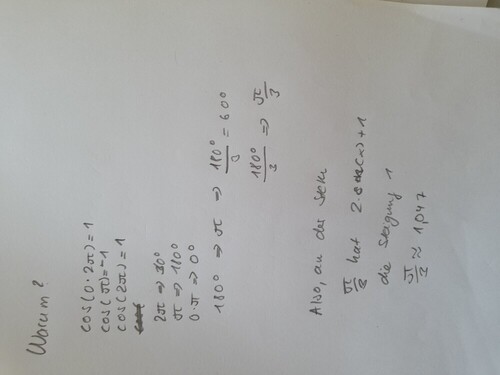 Warum?
cos(0·2π)=1
cos(π)=-1
cos(2π)=1
2π ⇒ 360°
π ⇒ 180°
0·π ⇒ 0°
180° ⇒ π ⇒ 180°/3 = 60°
180°/3 ⇒ π/3
Also, an der Stelle
π/3 hat 2·sin(x)+1
die Steigung 1
π/3 ≈ 1,047